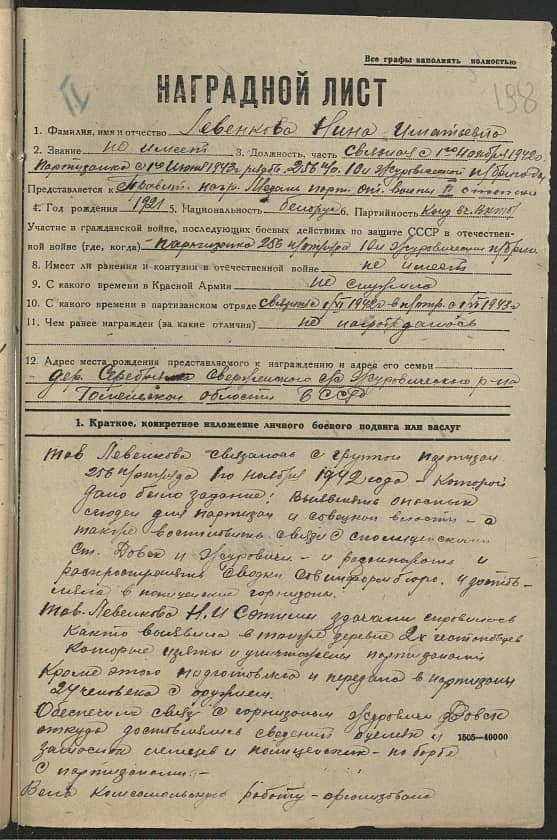 Все графы заполнять полностью
IV
198
НАГРАДНОЙ ЛИСТ
1. Фамилия, имя и отчество Левенкова Нина Игнатьевна
2. Звание не имеет 3. Должность, часть Связная с 1го Ноября 1942г.
Партизанка с 1го 1943г 256 п/о. 10й Журавической бригады
Представляется к Правит. нагр. Медали парт. От. войны II степени
4. Год рождения 1921 5. Национальность белорус 6. Партийность Канд вкп(б)
Участие в гражданской войне, последующих боевых действиях по защите СССР в отечествен-
ной войне (где, когда) партизанка 256 п/отряда 10й Журавический п/бриг
8. Имеет ли ранения и контузии в отечественной войне не имеет
9. С какого времени в Красной Армии не служила
10. С какого времени в партизанском отряде связная с 1942г в п/отр. с 1943г
11. Чем ранее награжден (за какие отличия) не награждалась
12. Адрес места рождения представляемого к награждению и адрес его семьи
дер. Сверженского с/с Журавического р-на
Гомельской области БССР
1. Краткое, конкретное изложение личного боевого подвига или заслуг
Тов Левенкова связалась с группой партизан
256 п/отряда 1го ноября 1942 года – Которой
дано было задание: Выявлять опасных
людей для партизан и советской власти – а
также восстановить связи с полицейскими
Ст. Довск и Журавичи – и
распространять сводки Совинформбюро. и достав-
ляла в полицейские гарнизоны.
Тов. Левенкова Н.И С этими задачами справилась
Как то выявила в таборе деревне 2х
которые изъяты и уничтожены партизанами
Кроме этого подготовила и передала в партизаны
24 человека с оружием.
Обеспечила связь с гарнизоном Журавичи Довск
откуда доставлялись сведения о и
замыслах немцев и полицейских – по борьбе
с партизанами. –
1505—40000
Вела комсомольскую работу – организовала